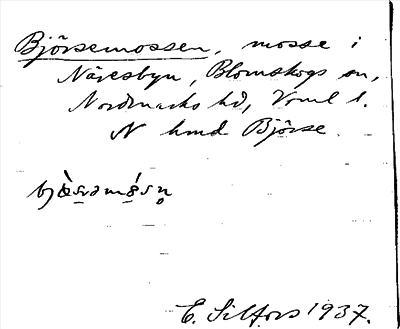 Björsemossen, mosse i
Näresbyn, Blomskogs sn,
Nordmarks hd, Vrml l.
N hmd Björse.
bjæ̀səmǿsn̥
E. Silfors 1937.